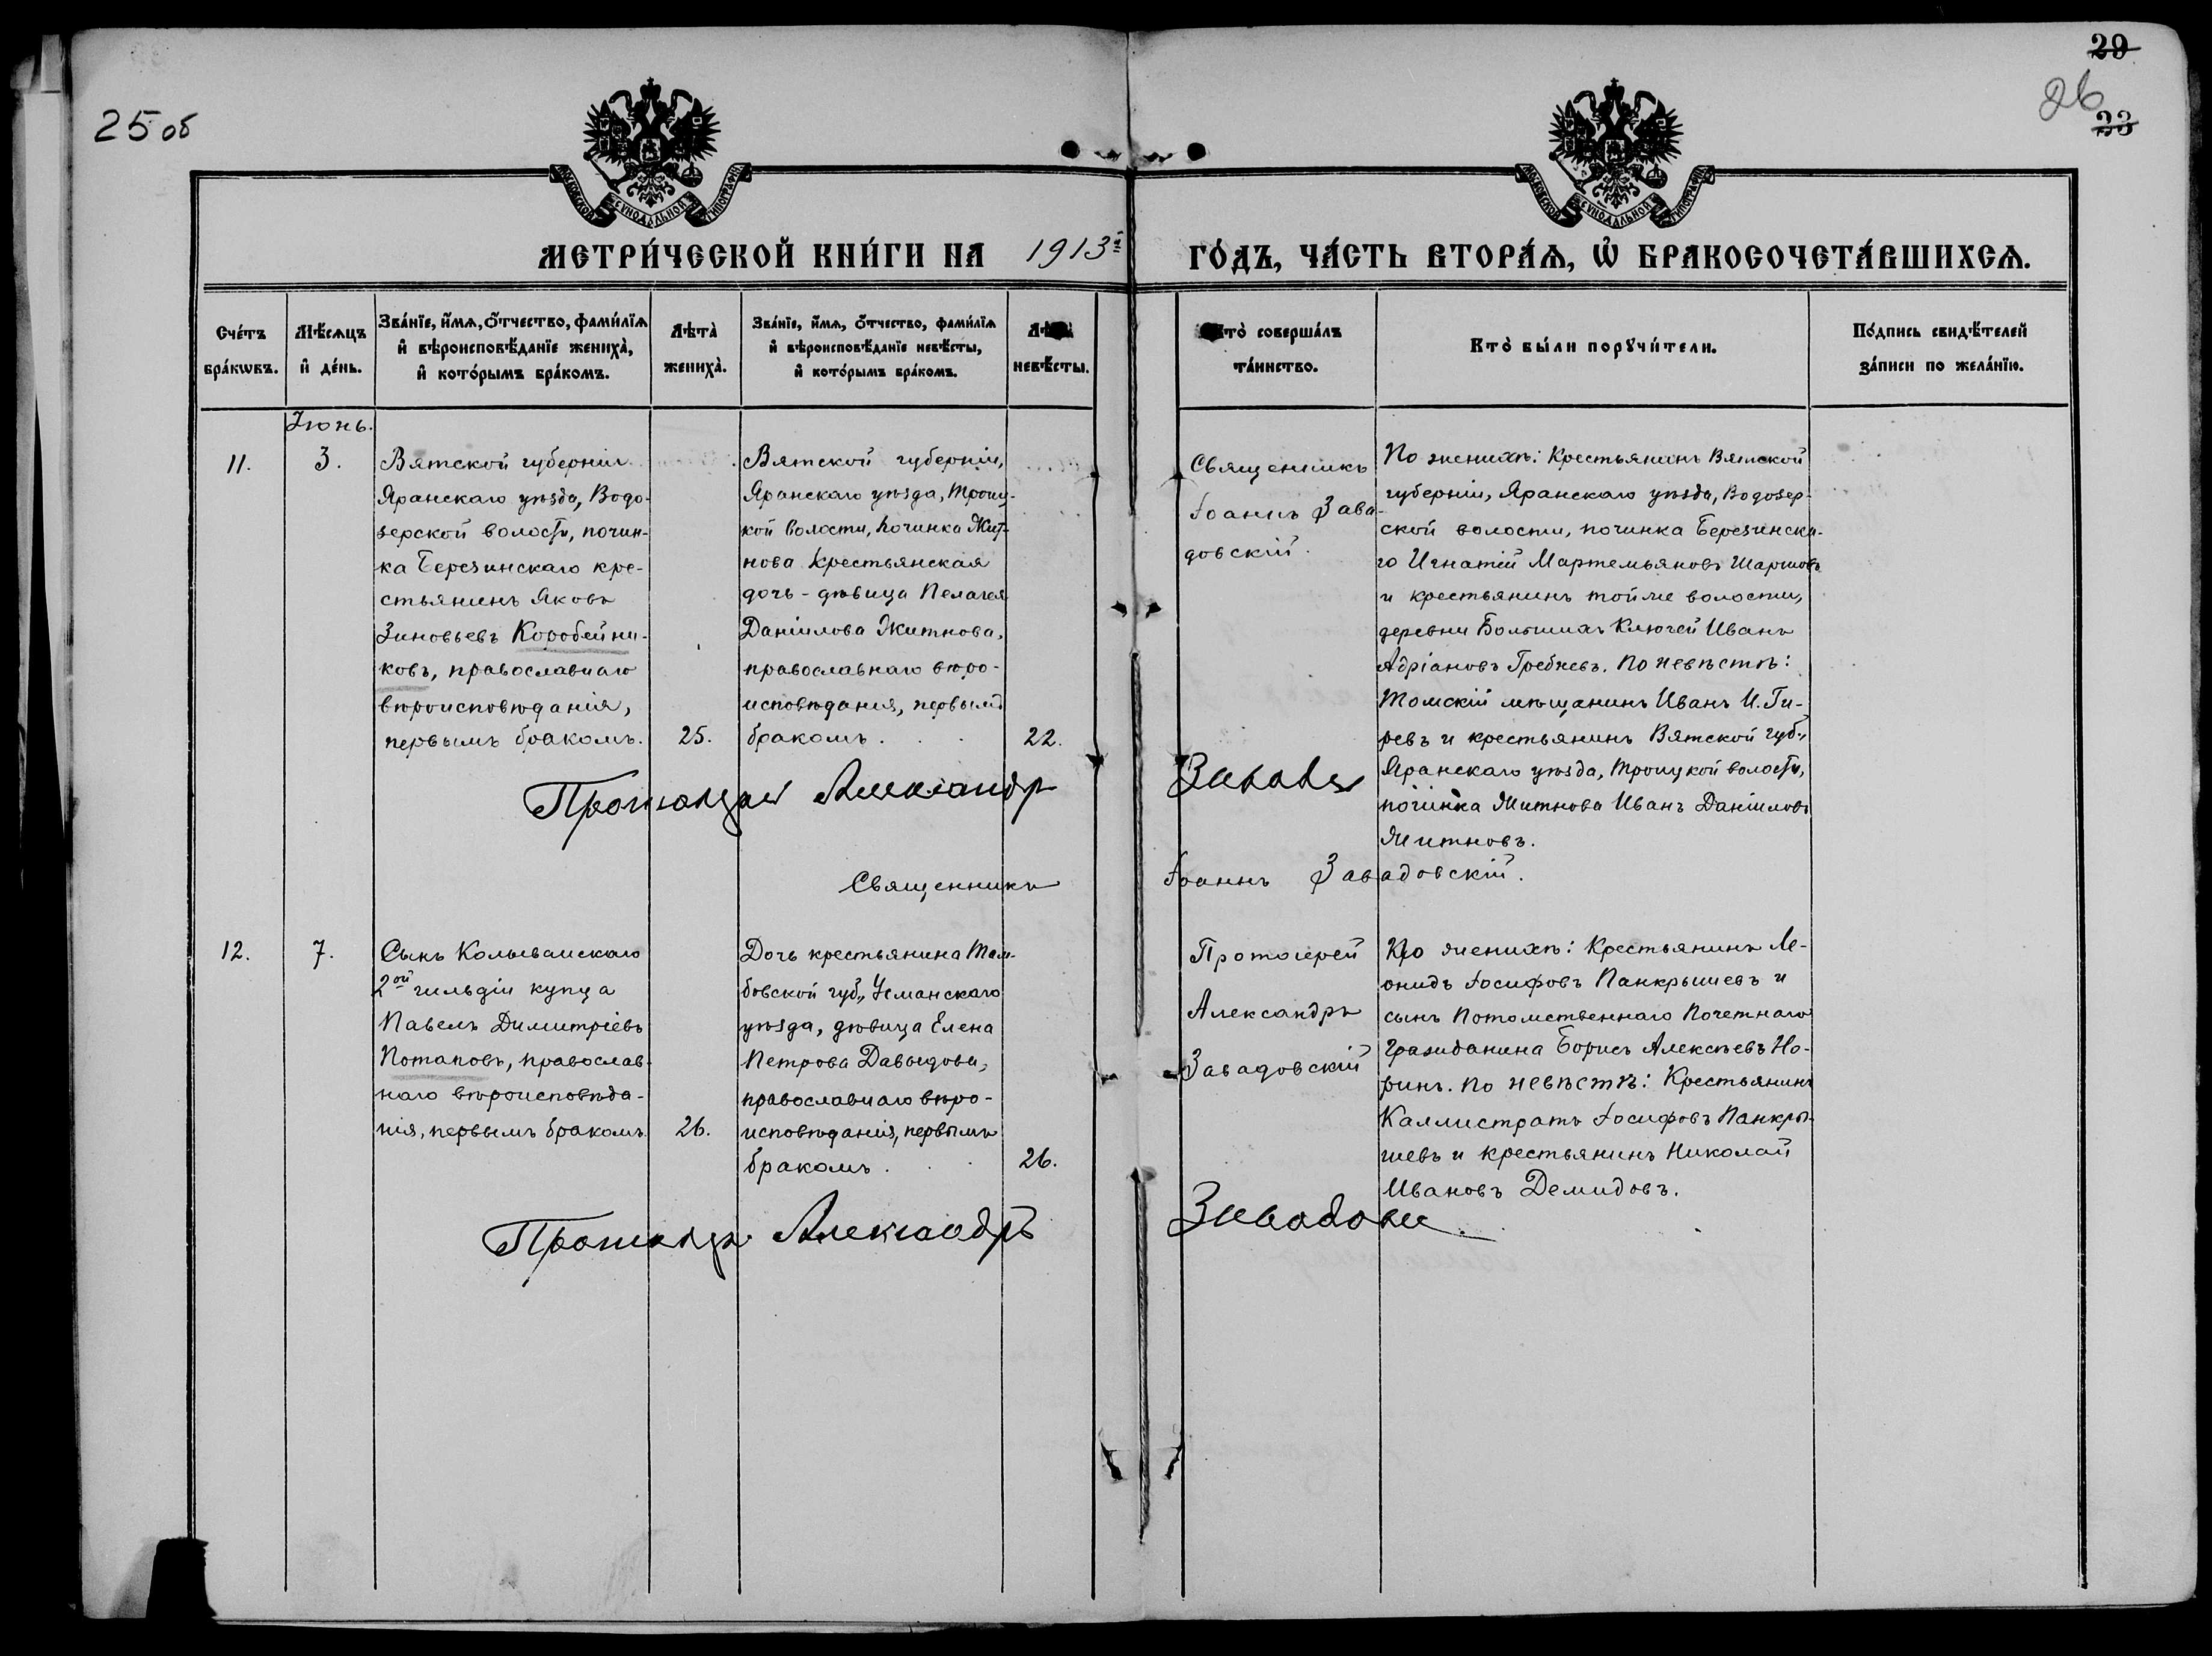 29
25 об
26
23
МОСКОВСКОЙ СѴНОДАЛЬНОЙ ТИПОГРАФІИ
МОСКОВСКОЙ СѴНОДАЛЬНОЙ ТИПОГРАФІИ
МЕТРИ́ЧЕСКОЙ КНИ́ГИ НА 1913й ГО́ДЪ, ЧА́СТЬ ВТОРА́Ѧ, Ѽ БРАКОСОЧЕТА́ВШИХСѦ.
Сче́тъ
бра́кѡвъ.
Мѣ́сѧцъ
и҆ де́нь.
Зва́нїе, и҆́мѧ, ѻ҆́тчество, фами́лїѧ
и҆ вѣроисповѣ́данїе жениха̀,
и҆ кото́рымъ бра́комъ.
Лѣта̀
жениха̀.
Зва́нїе, и҆́мѧ, ѻ҆́тчество, фами́лїѧ
и҆ вѣроисповѣ́данїе невѣ́сты,
и҆ кото́рымъ бра́комъ.
невѣ́сты.
Кто̀ соверша́лъ
та́инство.
Кто̀ бы́ли порꙋчи́тели.
По́дпись свидѣ́телей
за́писи по жела́нїю.
Іюнь.
11.
3.
Вятской губерніи
Яранскаго уѣзда, Водо-
зерской волости, почин-
ка Березинскаго кре-
стьянинъ Яковъ
Зиновьевъ Коробейни-
ковъ, православнаго
вѣроисповѣданія,
первымъ бракомъ.
25.
Вятской губерніи,
Яранскаго уѣзда, Троиц-
кой волости, починка Жит-
нова крестьянская
дочь - дѣвица Пелагея
Даніилова Житнова,
православнаго вѣро-
исповѣданія, первымъ
бракомъ . . .
22.
Священникъ
Іоаннъ Зава-
довскій.
По женихѣ: Крестьянинъ Вятской
губерніи, Яранскаго уѣзда, Водозер-
ской волости, починка Березинска-
го Игнатій Мартемьяновъ
и крестьянинъ той же волости,
деревни Большихъ Ключей Иванъ
Адріановъ Гребневъ. По невѣстѣ:
Томскій мѣщанинъ Иванъ И. Ги-
ревъ и крестьянинъ Вятской губ.,
Яранскаго уѣзда, Троицкой волости,
починка Житнова Иванъ Даніиловъ
Житновъ.
Протоіерей Александръ
Священникъ Іоаннъ Завадовскій.
12.
7.
Сынъ Колыванскаго
2ой гильдіи купца
Павелъ Димитріевъ
Потаповъ, православ-
наго вѣроисповѣда-
нія, первымъ бракомъ
26.
Дочь крестьянина Там-
бовской губ., Усманскаго
уѣзда, дѣвица Елена
Петрова Давыдова,
православнаго вѣро-
исповѣданія, первымъ
бракомъ . . .
26.
Протоіерей
Александръ
Завадовскій
По женихѣ: Крестьянинъ Ле-
онидъ Іосифовъ Панкрышевъ и
сынъ Потомственнаго Почетнаго
Гражданина Борисъ Алексѣевъ Но-
ринъ. По невѣстѣ: Крестьянинъ
Каллистратъ Іосифовъ Панкры-
шевъ и крестьянинъ Николай
Ивановъ Демидовъ.
Протоіерей Александръ